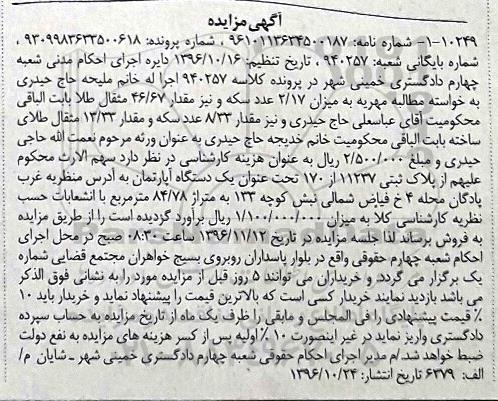 آگهی مزایده
۱-۱۰۲۴۹- شماره نامه: ۹۶۱۰۱۱۳۶۳۴۵۰۰۱۸۷ ، شماره پرونده: ۹۳۰۹۹۸۳۶۳۳۵۰۰۶۱۸ ،
شماره بایگانی شعبه: ۹۴۰۲۵۷ ، تاریخ تنظیم: ۱۳۹۶/۱۰/۱۶ دایره اجرای احکام مدنی شعبه
چهارم دادگستری خمینی شهر در پرونده کلاسه ۹۴۰۲۵۷ اجرا له خانم ملیحه حاج حیدری
به خواسته مطالبه مهریه به میزان ۲/۱۷ عدد سکه و نیز مقدار ۴۶/۶۷ مثقال طلا بابت الباقی
محکومیت آقای عباسعلی حاج حیدری و نیز مقدار ۸/۳۳ عدد سکه و مقدار ۱۳/۳۳ مثقال طلای
ساخته بابت الباقی محکومیت خانم خدیجه حاج حیدری به عنوان ورثه مرحوم نعمت الله حاجی
حیدری و مبلغ ۲/۵۰۰/۰۰۰ ریال به عنوان هزینه کارشناسی در نظر دارد سهم الارث محکوم
علیهم از پلاک ثبتی ۱۱۲۳۷ از ۱۷۰ تحت عنوان یک دستگاه آپارتمان به آدرس منظریه غرب
پادگان محله ۴ خ فیاض شمالی نبش کوچه ۱۳۳ به متراژ ۸۴/۷۸ مترمربع با انشعابات حسب
نظریه کارشناسی کلا به میزان ۱/۱۰۰/۰۰۰/۰۰۰ ریال برآورد گردیده است را از طریق مزایده
به فروش برساند لذا جلسه مزایده در تاریخ ۱۳۹۶/۱۱/۱۲ ساعت ۰۸:۳۰ صبح در محل اجرای
احکام شعبه چهارم حقوقی واقع در بلوار پاسداران روبروی بسیج خواهران مجتمع قضایی شماره
یک برگزار می گردد و خریداران می توانند ۵ روز قبل از مزایده مورد را به نشانی فوق الذکر
می باشد بازدید نمایند خریدار کسی است که بالاترین قیمت را پیشنهاد نماید و خریدار باید ۱۰
٪ قیمت پیشنهادی را فی المجلس و مابقی را ظرف یک ماه از تاریخ مزایده به حساب سپرده
دادگستری واریز نماید در غیر اینصورت ۱۰٪ اولیه پس از کسر هزینه های مزایده به نفع دولت
ضبط خواهد شد./م مدیر اجرای احکام حقوقی شعبه چهارم دادگستری خمینی شهر ـ شایان م/
الف: ۶۳۷۹ تاریخ انتشار: ۱۳۹۶/۱۰/۲۴